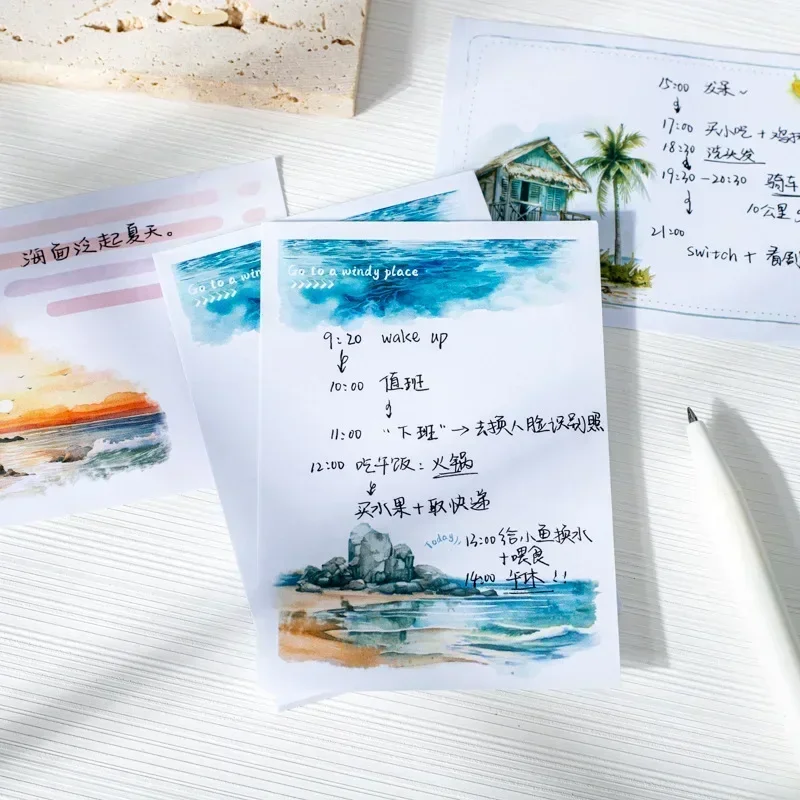 海面泛起夏天。
Go to a win
>>>>>>
Go to a windy place
>>>>>>
9:20 wake up
10:00 值班
11:00 “下班”→去换人脸识别照
12:00 吃午饭:火锅
买水果+取快递
Today
13:00 给小鱼换水
+喂食
14:00 午休!!
15:00 发呆~
17:00 买小吃+鸡
18:30 洗头发
19:30-20:30 骑车
10公里
21:00
switch+看剧